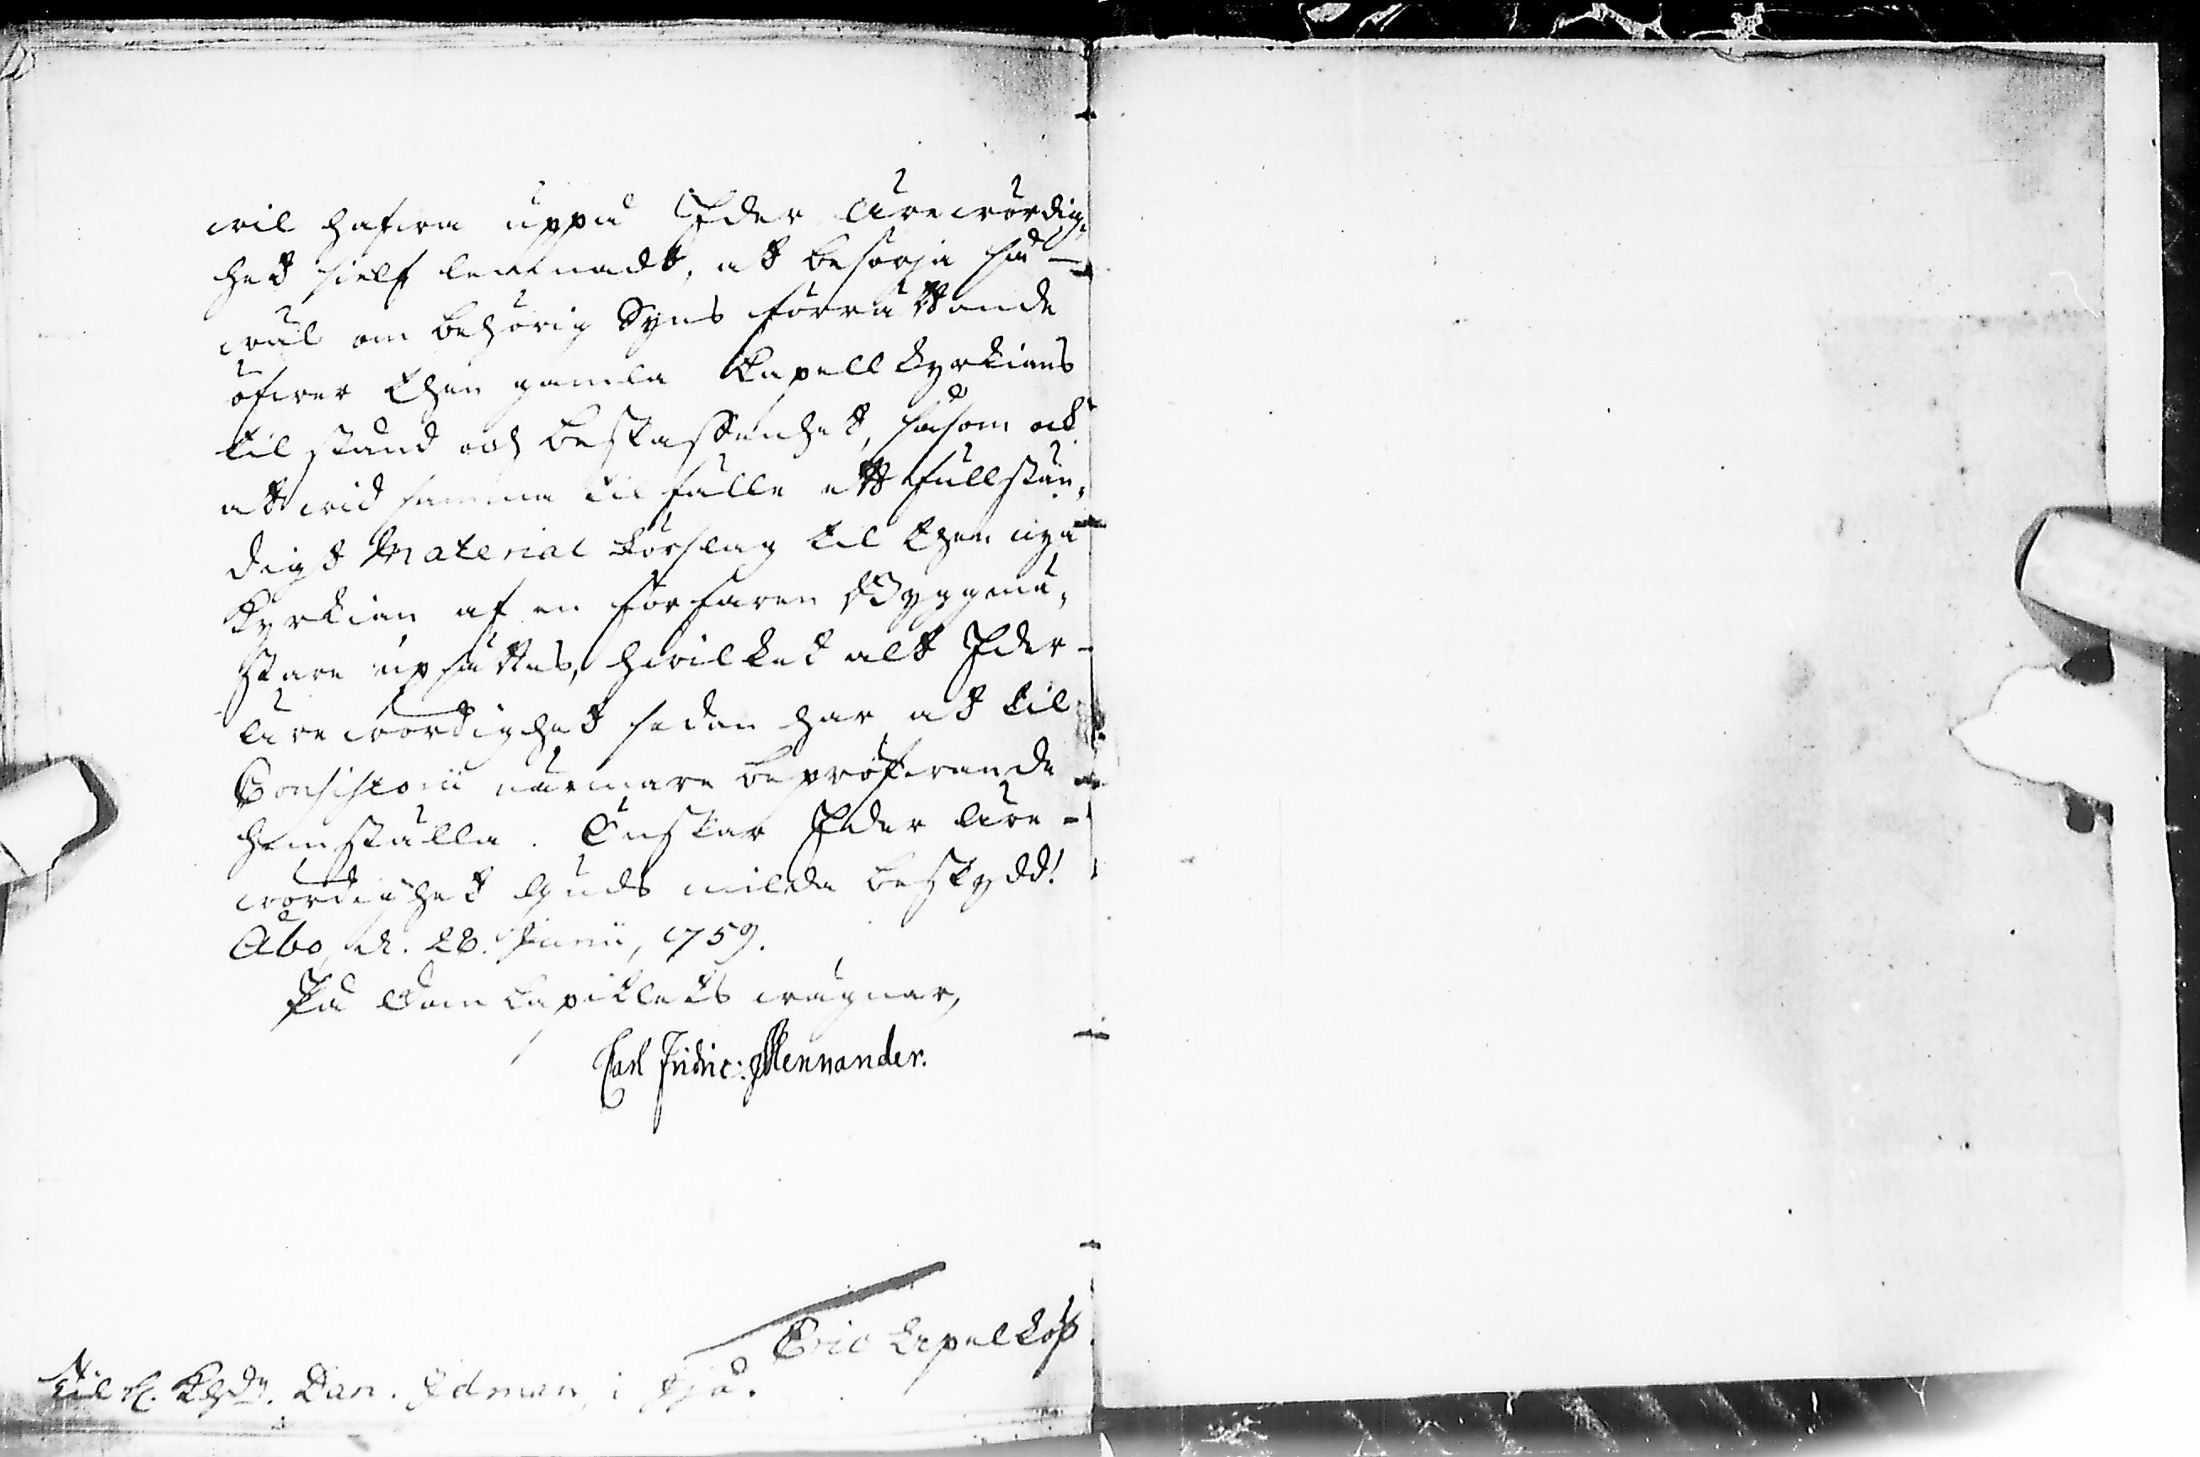 wil hafwa uppå Eder Ärewördig,
het sielf lemnadt, at besörja så-
wäl om behörig Syns förrättande
öfwer then gamla Capell kyrkians
tilstånd och beskaffenhet, såsom ock
at wid samma tilfälle ett fullstän,
digt Material förslag til then nya
Kyrkian af en förfaren Byggmä,
stare upsättes, hwilket alt Eder
Ärewördighet sedan har at til
Consistorii närmare bepröfwande
hemställa. Önskar Eder Äre-
wördighet Guds milda beskydd!
Åbo, d. 28. Junii, 1759.
På Dom Capitlets wägnar,
Carl Fridric: Mennander.
Eric Lepelköp
Til Dan. Idman, i